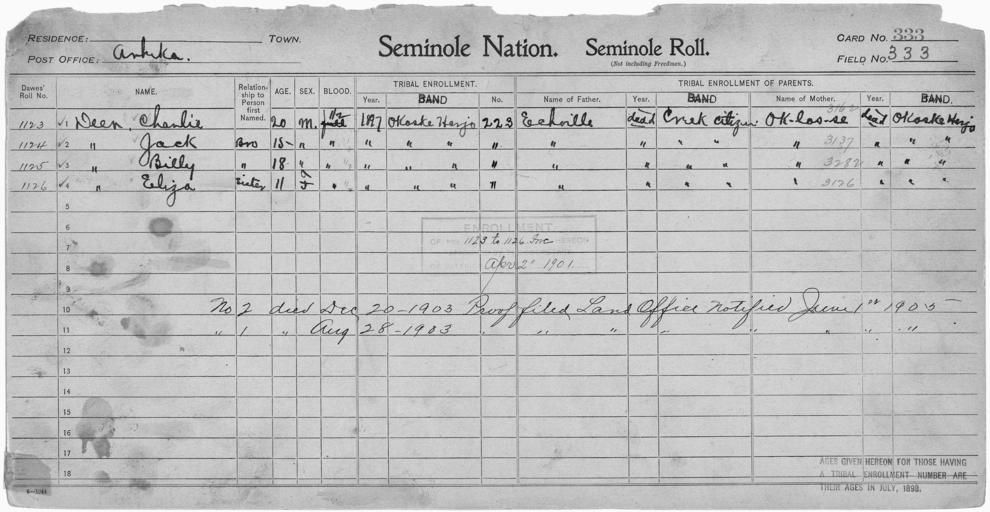 RESIDENCE: TOWN.
POST OFFICE: Arbika.
Seminole Nation. Seminole Roll.
(Not including Freedmen.)
CARD NO. 333
FIELD NO. 333
TRIBAL ENROLLMENT. TRIBAL ENROLLMENT OF PARENTS.
Dawes' Roll No. NAME. Relationship to Person first Named. AGE. SEX. BLOOD. Year. BAND No. Name of Father. Year. BAND Name of Mother. Year. BAND.
1123 √1 Deer, Charlie 20 M. 1/2 1897 Okoske Harjo 223 Echville dead Creek citizen Ok-los-se 3162 dead Okoske Harjo
1124 √2 " Jack Bro 15 " " " " " " " " " " " " 3137 " " "
1125 √3 " Billy " 18 " " " " " " " " " " " 3282 " " "
1126 √4 " Eliza Sister 11 F " " " " " " " " " " 3126 " " "
5
6 ENROLLMENT
OF HEREON
7 1123 to 1126 Inc
8 Apr 2" 1901
9
10 No 2 died Dec 20-1903 Proof filed Land Office notified June 1st 1905
11 " 1 " Aug 28-1903 " " " " " "
12
13
14
15
16
17
18
AGES GIVEN HEREON FOR THOSE HAVING
A TRIBAL ENROLLMENT NUMBER ARE
THEIR AGES IN JULY, 1898.